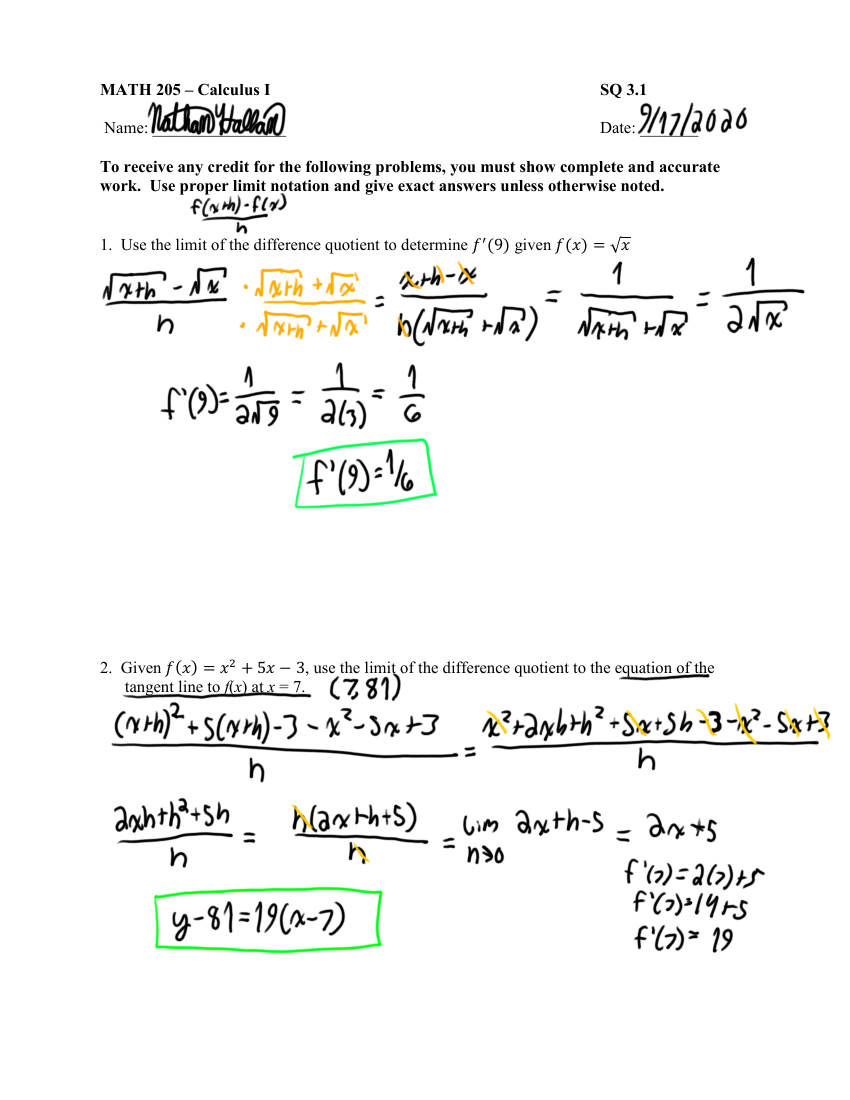 MATH 205 – Calculus I SQ 3.1
Name: Nathan Hallan Date: 9/17/2020
To receive any credit for the following problems, you must show complete and accurate
work. Use proper limit notation and give exact answers unless otherwise noted.
(f(x+h)-f(x))/h
1. Use the limit of the difference quotient to determine f′(9) given f(x) = √x
(√(x+h) - √x)/h · (√(x+h) + √x)/(√(x+h) + √x) = (x+h-x)/(h(√(x+h) + √x)) = 1/(√(x+h) + √x) = 1/(2√x)
f'(9) = 1/(2√9) = 1/(2(3)) = 1/6
f'(9) = 1/6
2. Given f(x) = x² + 5x − 3, use the limit of the difference quotient to the equation of the
tangent line to f(x) at x = 7. (7,81)
((x+h)²+5(x+h)-3-x²-5x+3)/h = (x²+2xh+h²+5x+5h-3-x²-5x+3)/h
(2xh+h²+5h)/h = (h(2x+h+5))/h = lim h→0 2x+h-5 = 2x+5
f'(7)=2(7)+5
f'(7)=14+5
f'(7)= 19
y-81=19(x-7)